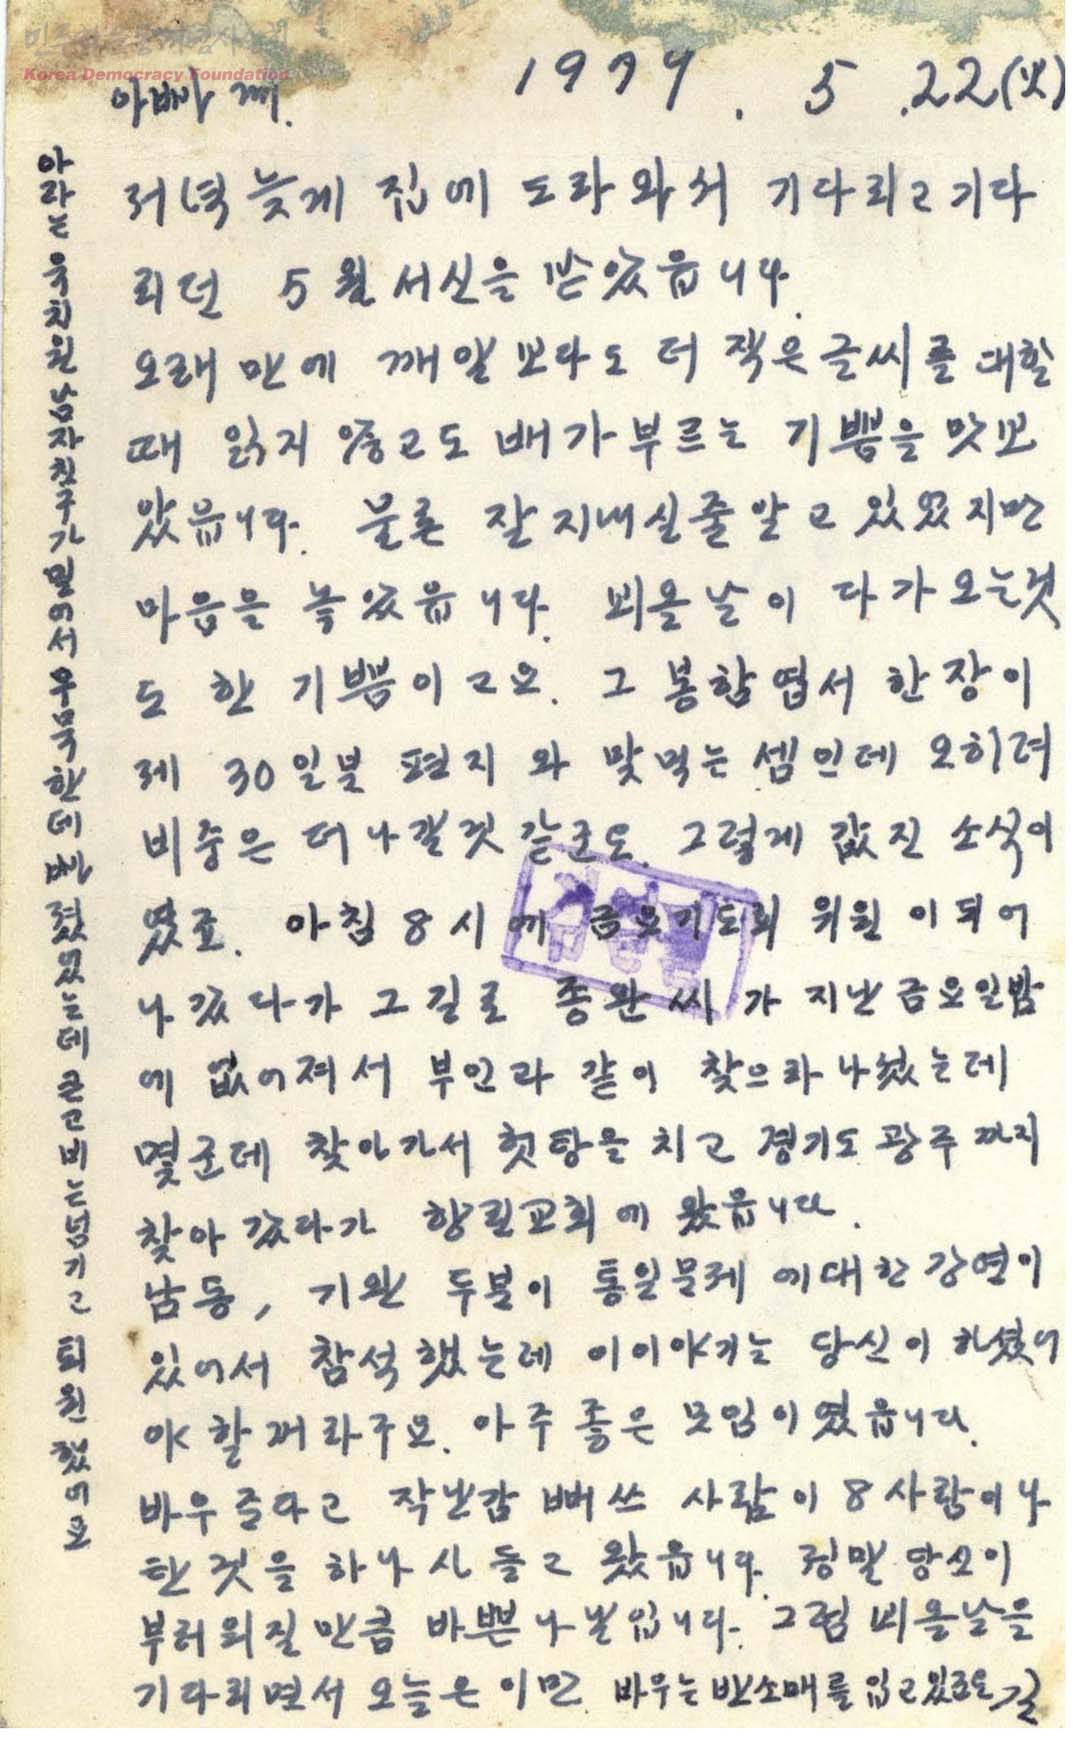 민주화운동기념사업회
Korea Democracy Foundation
1979. 5. 22(火)
아빠께.
저녁 늦게 집에 도라와서 기다리고 기다
리던 5월 서신을 받았읍니다.
오래만에 깨알보다도 더 잭은 글씨를 대할
때 읽지 않고도 배가부르는 기쁨을 맛보
았읍니다. 물론 잘 지내실줄 알고 있었지만
마음을 놓았읍니다. 뵈올 날이 다가오는것
도 한 기쁨이고요. 그 봉함엽서 한장이
제 30일분 편지와 맞먹는 셈인데 오히려
비중은 더 나갈것 같군요. 그렇게 값진 소식이
였죠. 아침 8시에 금요기도회 위원이 되어
나갔다가 그길로 종완씨가 지난 금요일밤
에 없어져서 부인과 같이 찾으라 나섰는데
몇군데 찾아가서 헛탕을 치고 경기도 광주까지
찾아 갔다가 향린교회에 왔읍니다.
남동, 기완 두분이 통일문제에 대한 강연이
있어서 참석했는데 이이야기는 당신이 하셨어
야 할꺼라구요. 아주 좋은 모임이였읍니다.
바우 준다고 작난감 뻐쓰 사람이 8사람이나
탄것을 하나 사 들고 왔읍니다. 정말 당신이
부러워질 만큼 바쁜 나날입니다. 그럼 뵈올날을
기다리면서 오늘은 이만 바우는 반소매를 입고 있죠. 길
아라는 유치원 남자친구가 밀어서 우묵한데 빠졌었는데 큰고비는넘기고 퇴원했어요